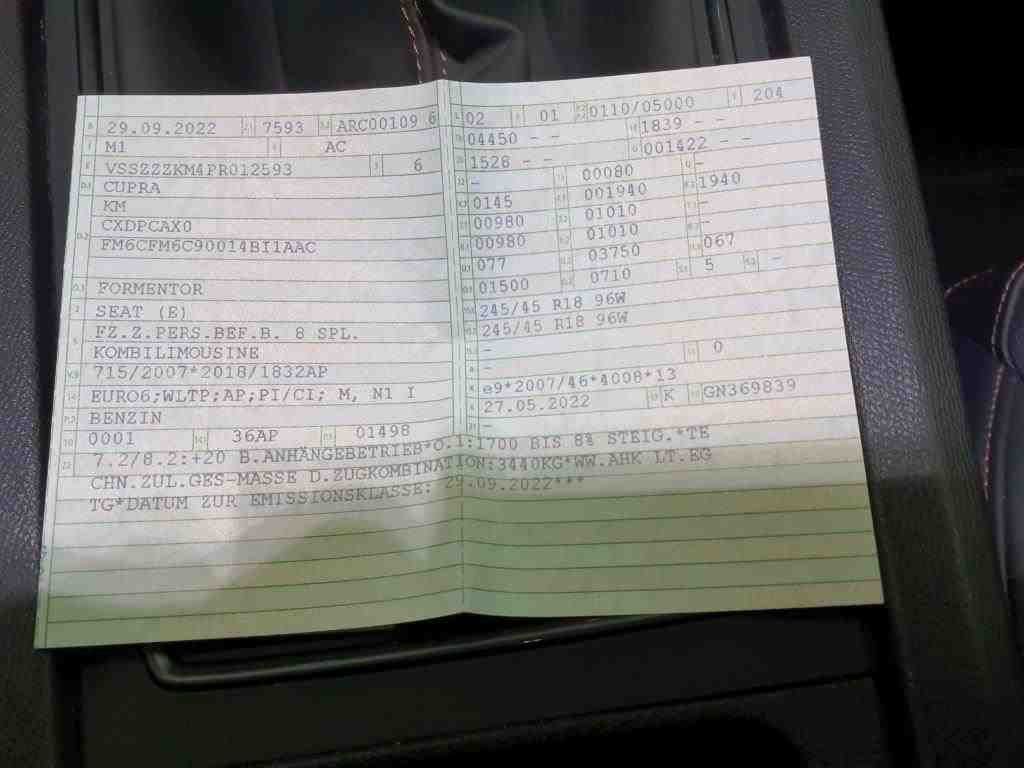 29.09.2022 7593 ARC00109 6
M1 AC
VSSZZZKM4PR012593 6
CUPRA
KM
CXDPCAX0
FM6CFM6C90014BI1AAC
FORMENTOR
SEAT (E)
FZ.Z.PERS.BEF.B. 8 SPL.
KOMBILIMOUSINE
715/2007*2018/1832AP
EURO6;WLTP;AP;PI/CI; M, N1 I
BENZIN
0001 36AP 01498
02 01 0110/05000 204
04450 - - 1839 - -
1528 - - 001422 - -
- 00080 -
0145 001940 1940
00980 01010 -
00980 01010 -
077 03750 067
01500 0710 5 -
245/45 R18 96W
245/45 R18 96W
-
- 0
e9*2007/46*4008*13
27.05.2022 K GN369839
-
7.2/8.2:+20 B.ANHÄNGEBETRIEB*O.1:1700 BIS 8% STEIG.*TE
CHN.ZUL.GES-MASSE D.ZUGKOMBINATION:3440KG*WW.AHK LT.EG
TG*DATUM ZUR EMISSIONSKLASSE: 29.09.2022***